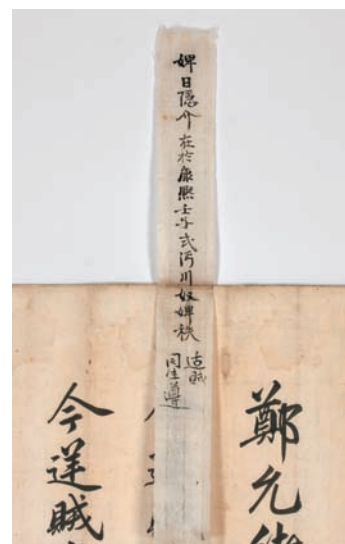 婢日隱介在於康熙壬子式沔川奴婢秩
同生
鄭允
今逆賊